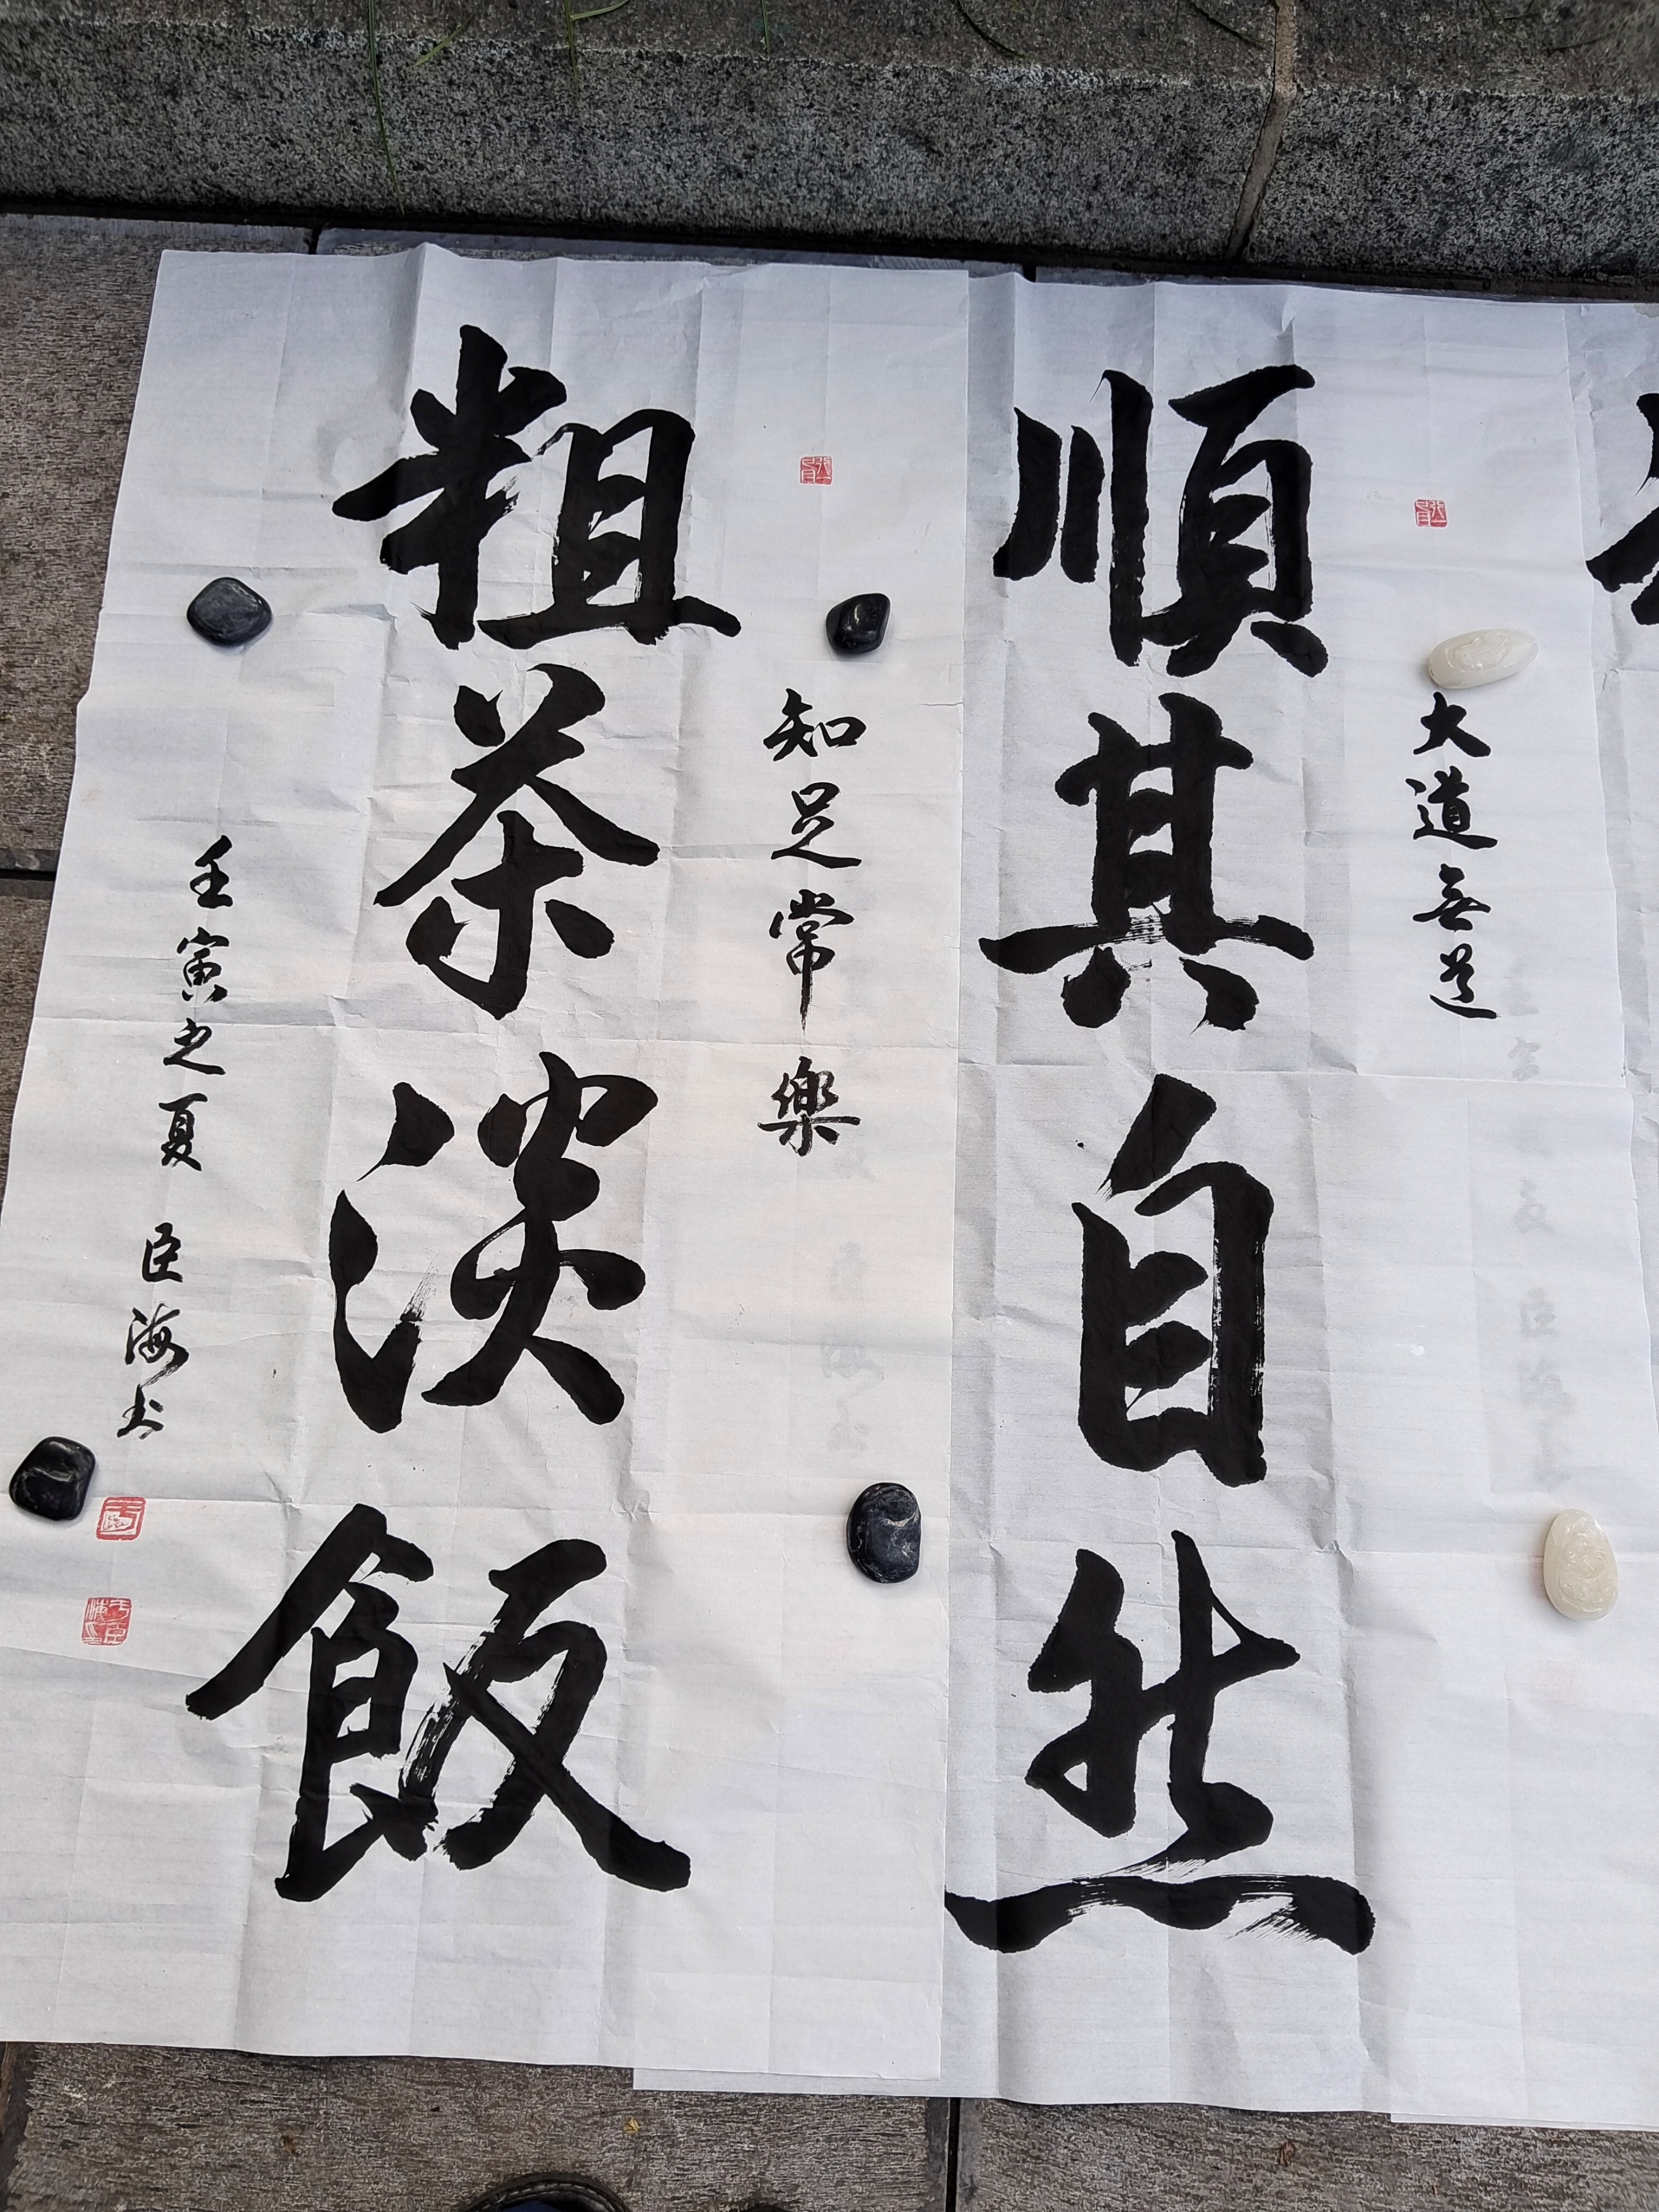 大道無道
順其自然
知足常樂
粗茶淡飯
壬寅之夏 臣海书